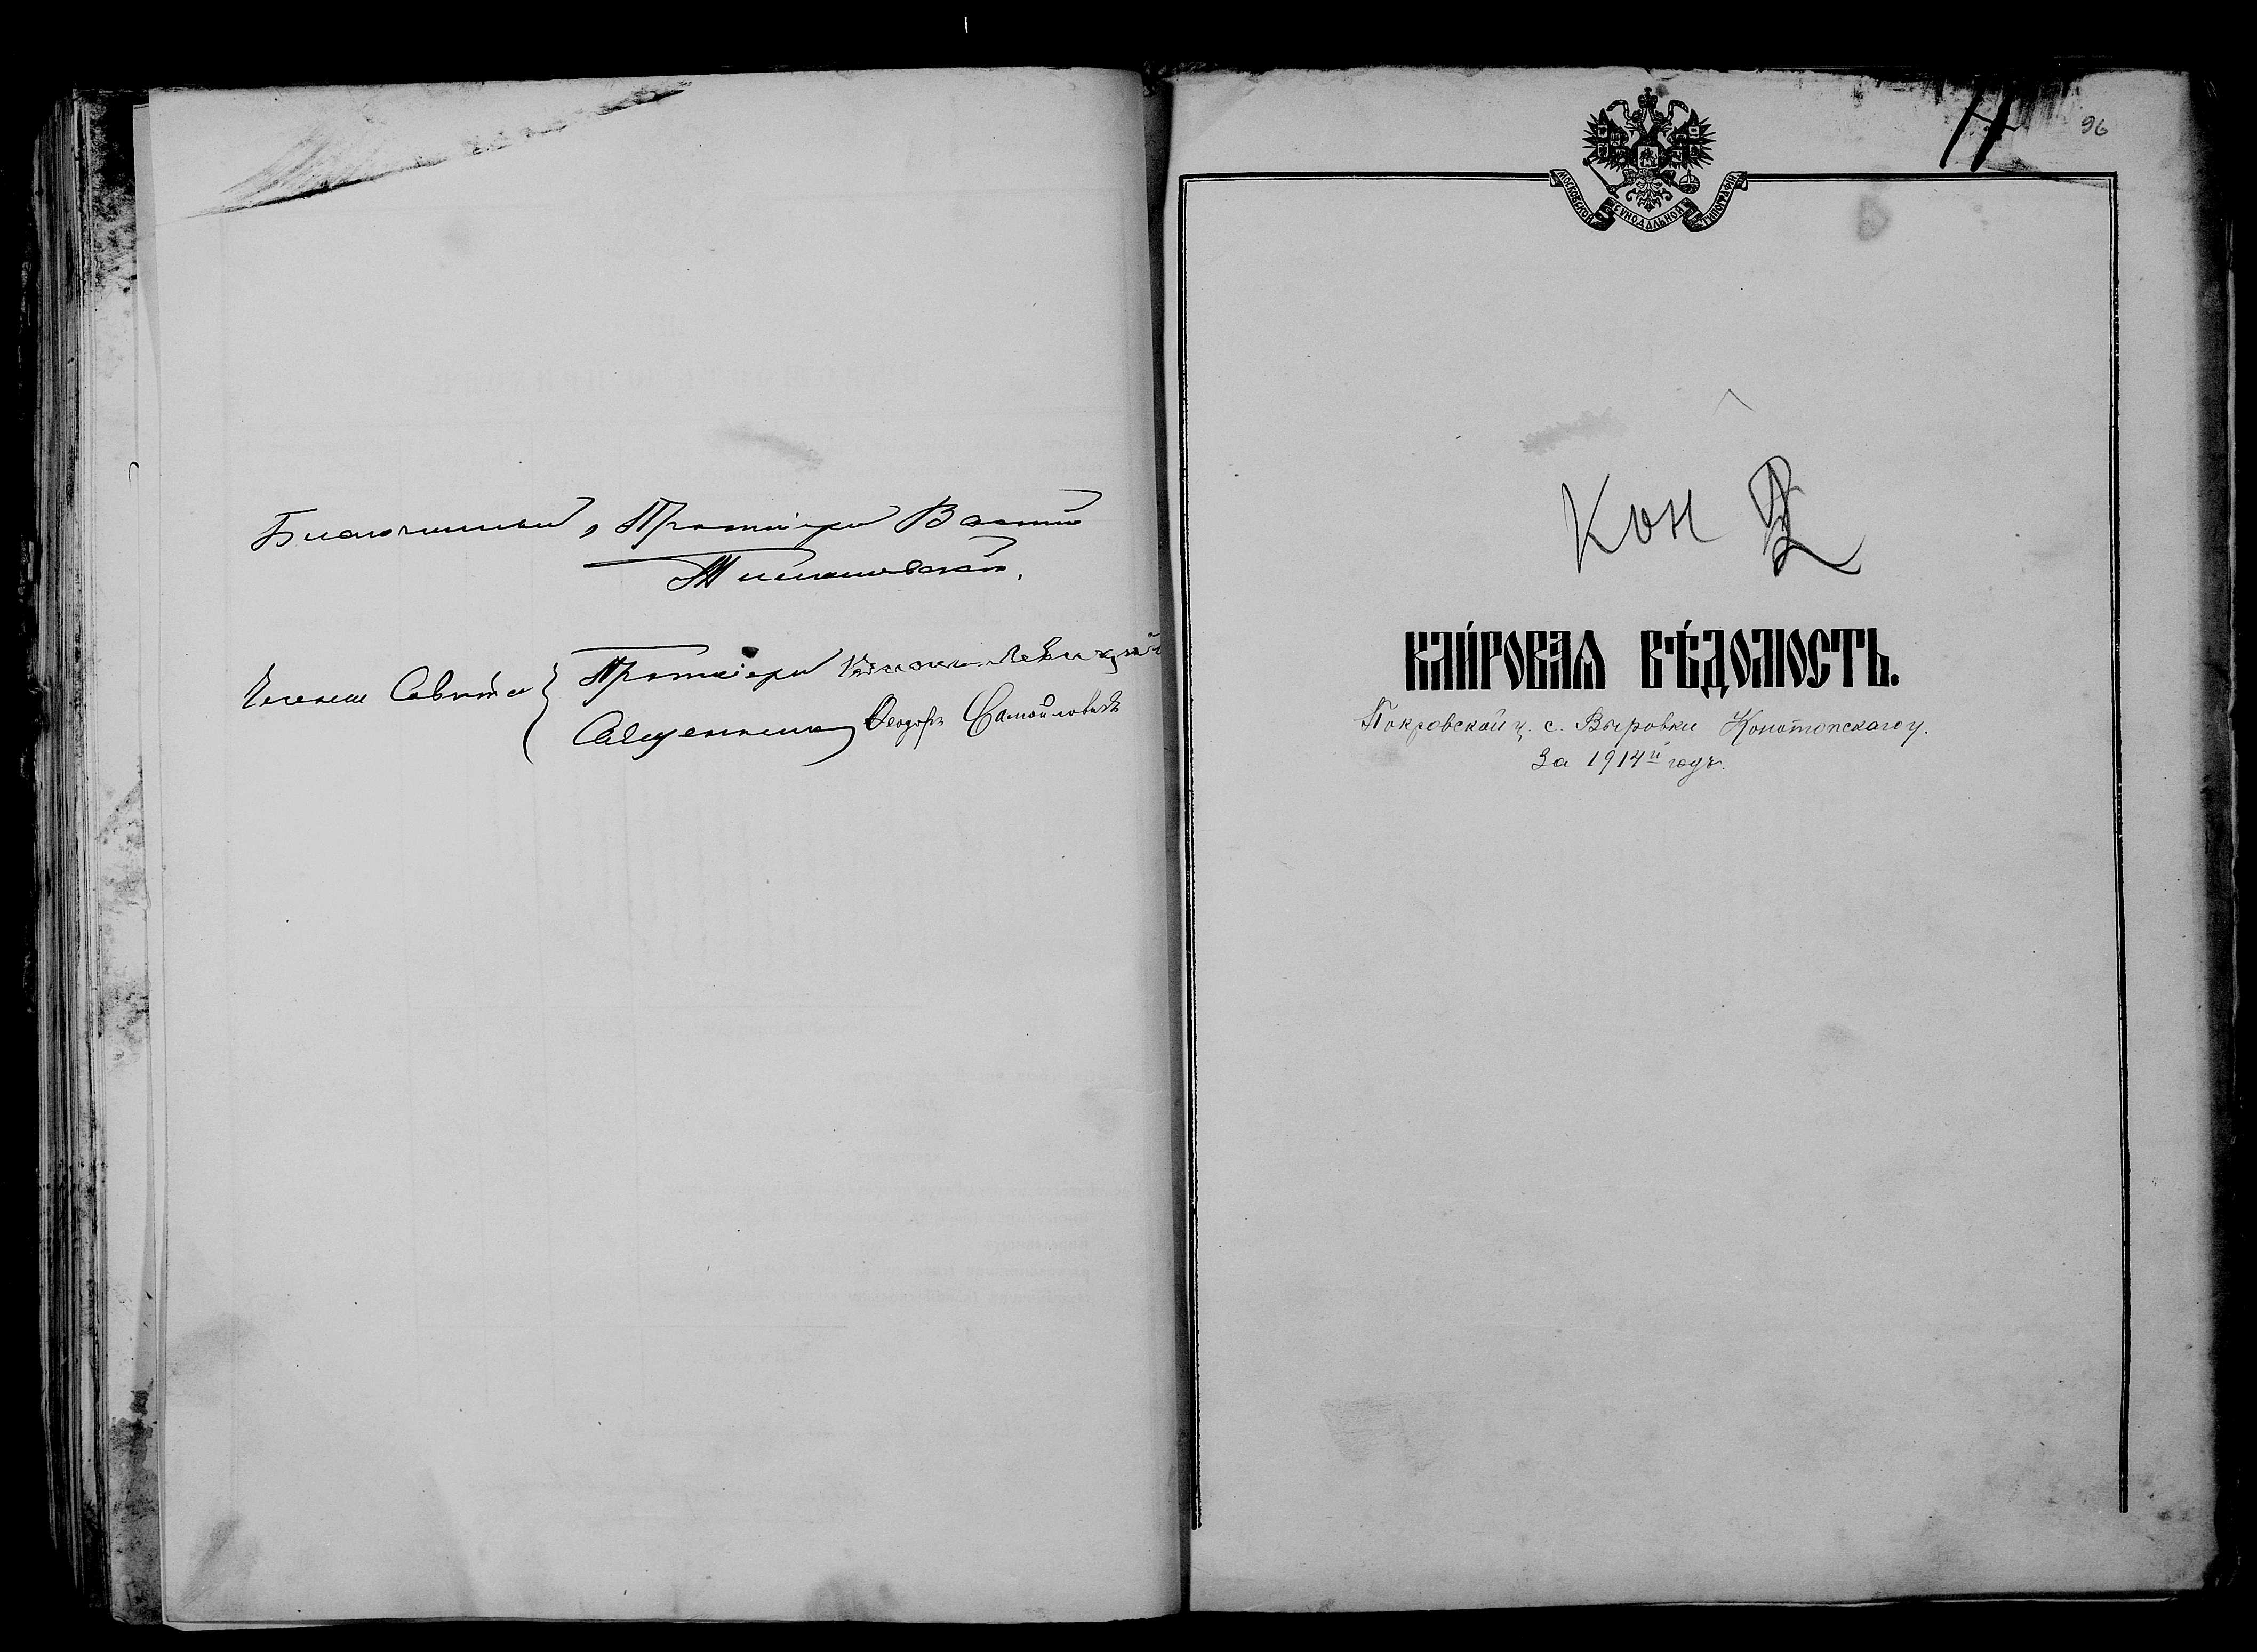 Благочинный, Протоіерей Василій
Тимановскій.
Члены Совѣта { Протоіерей Левицкій
Священникъ Ѳеодоръ Самойловичъ
96
МОСКОВСКОЙ СѴНОДАЛЬНОЙ ТИПОГРАФІИ
Кон
КЛИ́РОВАѦ ВѢ́ДОМОСТЬ.
Покровской ц. с. Выровки Конотопскаго у.
За 1914й годъ.